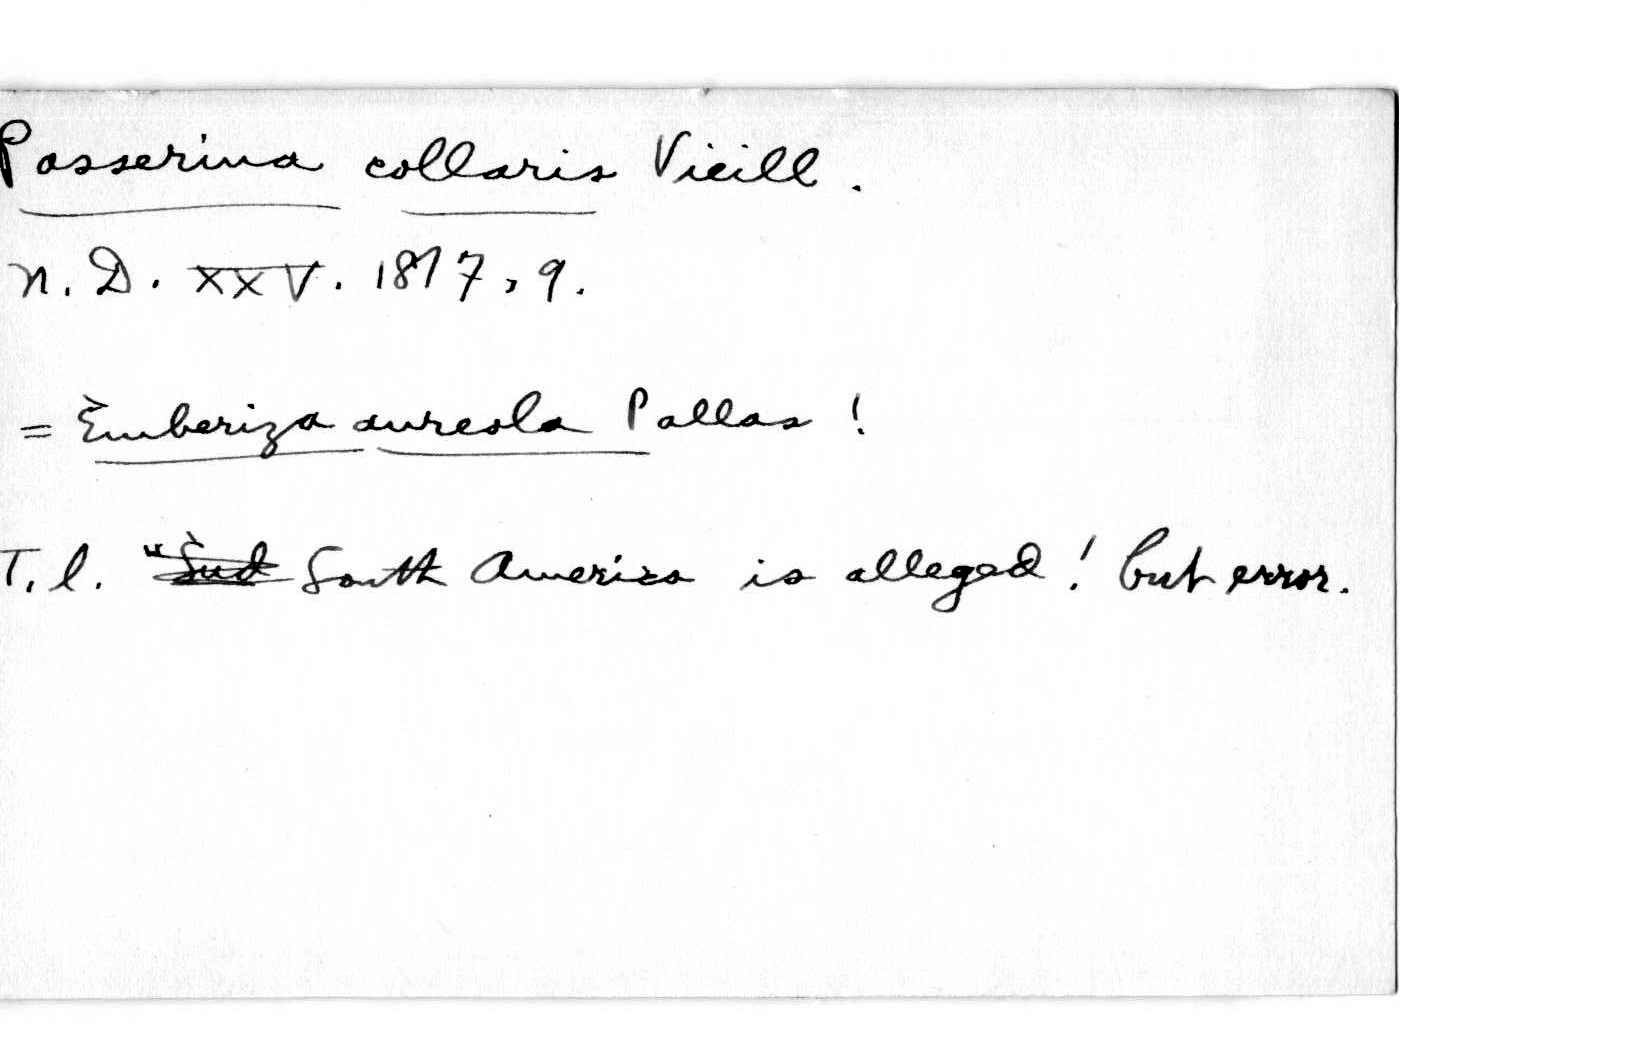 Passerina collaris Vieill.
N. D. XXV. 1817, 9.
= Emberiza aureola Pallas !
T. l. "Sud South America is alleged ! but error.